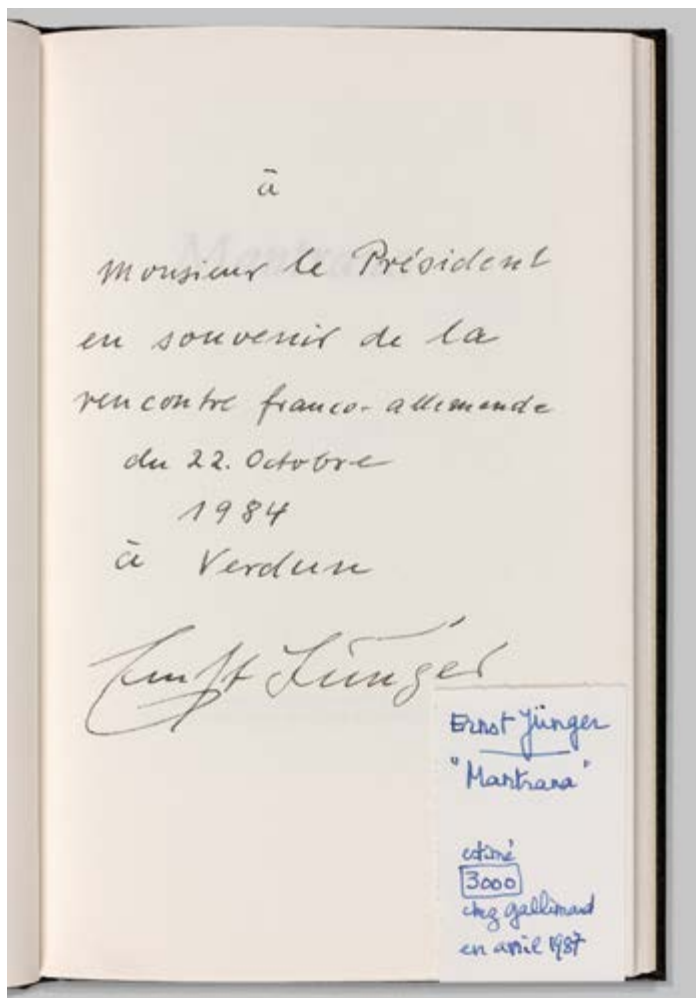 à
Monsieur le Président
en souvenir de la
rencontre franco-allemande
du 22. Octobre
1984
à Verdun
Ernst Jünger
Ernst Jünger
"Mantrana"
estimé
3000
chez Gallimard
en avril 1987